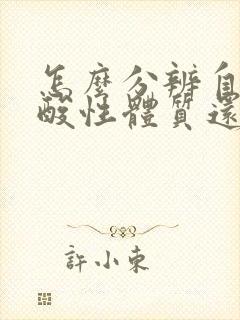 怎麼分辨自
酸性體質還
許小東